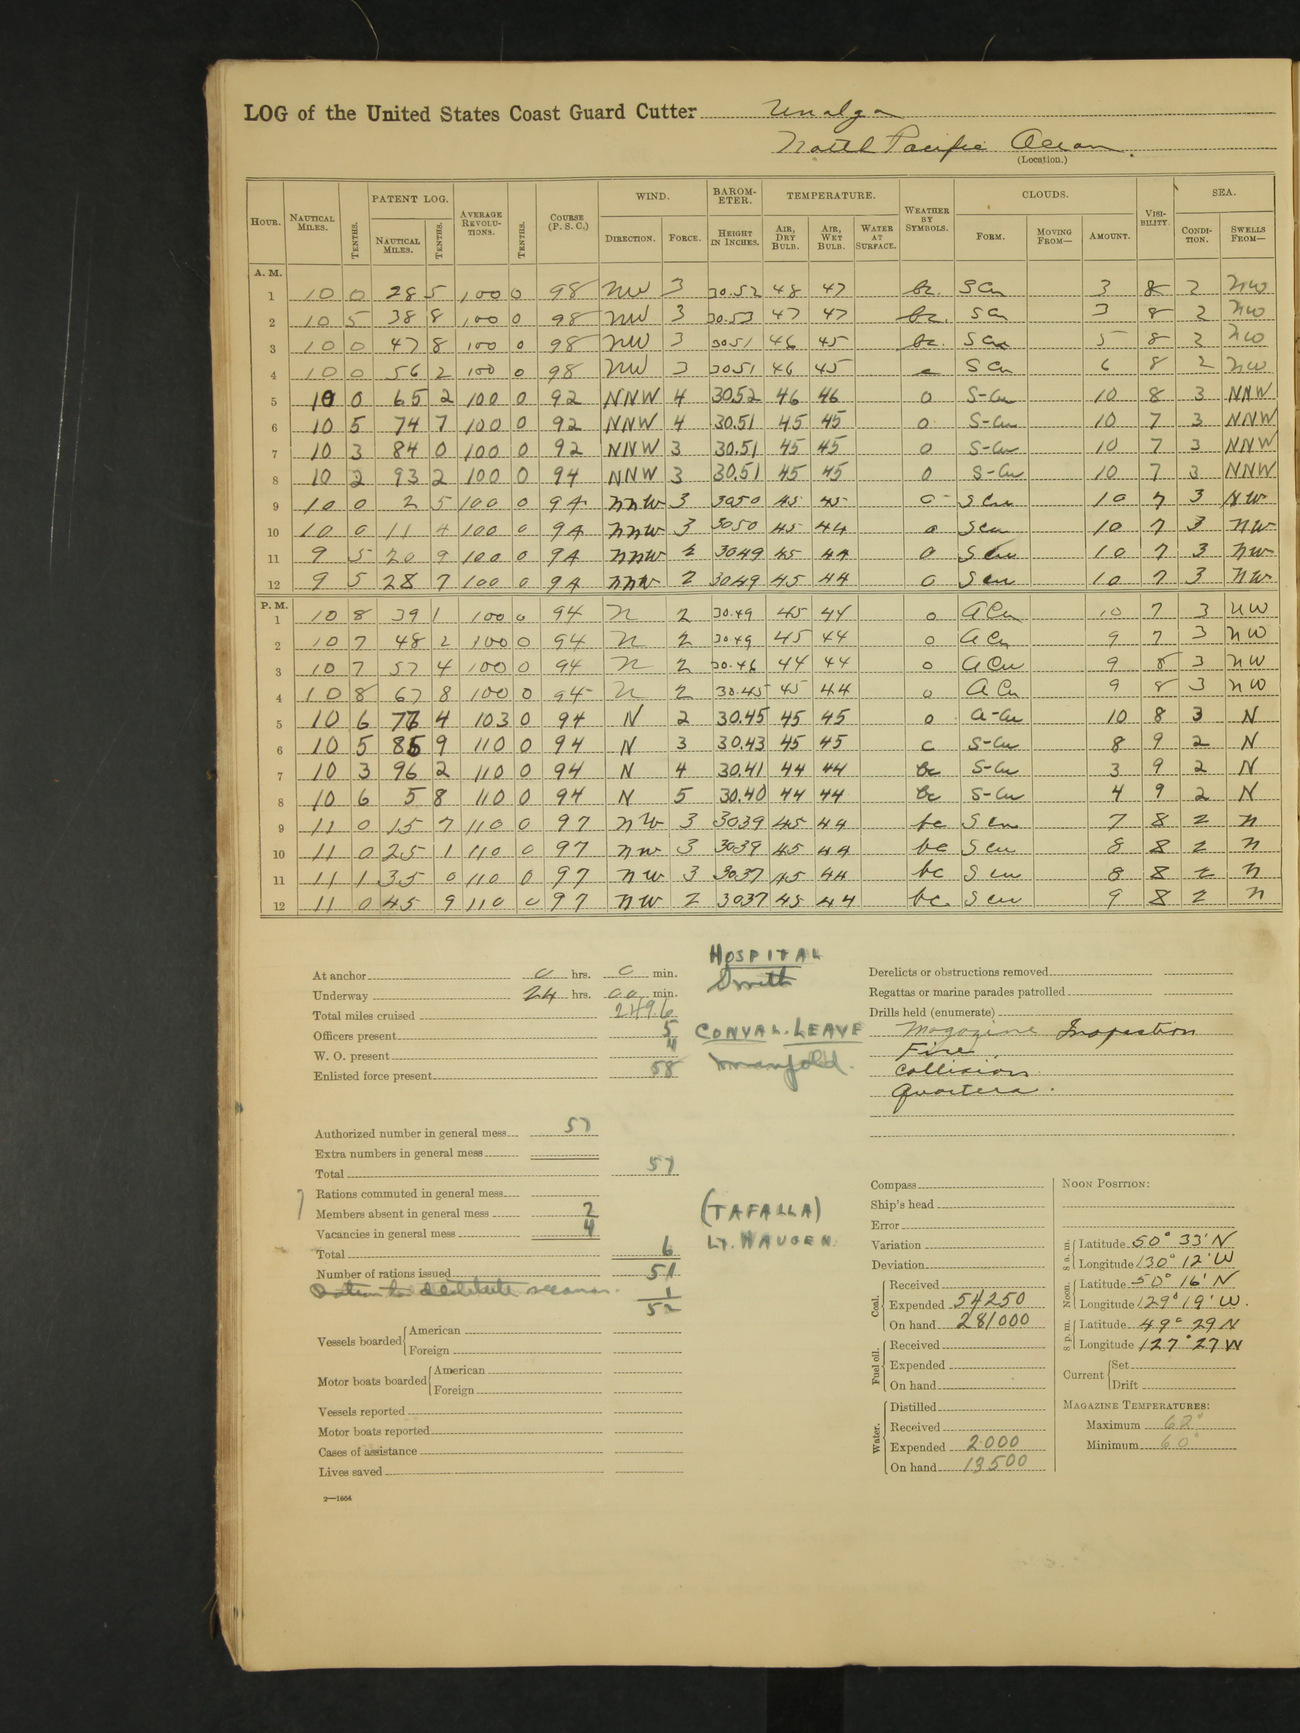 LOG of the United States Coast Guard Cutter Unalga
North Pacific Ocean.
(Location.)
HOUR. NAUTICAL MILES. TENTHS. PATENT LOG. NAUTICAL MILES. TENTHS. AVERAGE REVOLUTIONS. TENTHS. COURSE (P. S. C.) WIND. DIRECTION. FORCE. BAROMETER. HEIGHT IN INCHES. TEMPERATURE. AIR, DRY BULB. AIR, WET BULB. WATER AT SURFACE. WEATHER BY SYMBOLS. CLOUDS. FORM. MOVING FROM— AMOUNT. VISIBILITY. SEA. CONDITION. SWELLS FROM—
A. M.
1 10 0 28 5 100 0 98 NW 3 30.52 48 47 bc. S Cu 3 8 2 NW
2 10 5 38 8 100 0 98 NW 3 30.53 47 47 bc. S Cu 3 8 2 NW
3 10 0 47 8 100 0 98 NW 3 30.51 46 45 bc. S Cu 5 8 2 NW
4 10 0 56 2 100 0 98 NW 3 30.51 46 45 c S Cu 6 8 2 NW
5 10 0 65 2 100 0 92 NNW 4 30.52 46 46 o S-Cu 10 8 3 NNW
6 10 5 74 7 100 0 92 NNW 4 30.51 45 45 o S-Cu 10 7 3 NNW
7 10 3 84 0 100 0 92 NNW 3 30.51 45 45 o S-Cu 10 7 3 NNW
8 10 2 93 2 100 0 94 NNW 3 30.51 45 45 o S-Cu 10 7 3 NNW
9 10 0 2 5 100 0 94 NNW 3 3050 45 45 o S Cu 10 7 3 NW
10 10 0 11 4 100 0 94 NNW 3 3050 45 44 o S Cu 10 7 3 NW
11 9 5 20 9 100 0 94 NNW 2 3049 45 44 o S Cu 10 7 3 NW
12 9 5 28 7 100 0 94 NNW 2 3049 45 44 o S Cu 10 7 3 NW
P. M.
1 10 8 39 1 100 0 94 N 2 30.49 45 44 o A Cu 10 7 3 NW
2 10 7 48 2 100 0 94 N 2 30.49 45 44 o A Cu 9 7 3 NW
3 10 7 57 4 100 0 94 N 2 30.46 44 44 o A Cu 9 8 3 NW
4 10 8 67 8 100 0 94 N 2 30.45 45 44 o A Cu 9 8 3 NW
5 10 6 76 4 103 0 94 N 2 30.45 45 45 o A-Cu 10 8 3 N
6 10 5 86 9 110 0 94 N 3 30.43 45 45 c S-Cu 8 9 2 N
7 10 3 96 2 110 0 94 N 4 30.41 44 44 bc S-Cu 3 9 2 N
8 10 6 5 8 110 0 94 N 5 30.40 44 44 bc S-Cu 4 9 2 N
9 11 0 15 7 110 0 97 NW 3 3039 45 44 bc S Cu 7 8 2 N
10 11 0 25 1 110 0 97 NW 3 3039 45 44 bc S Cu 8 8 2 N
11 11 1 35 0 110 0 97 NW 3 3037 45 44 bc S Cu 8 8 2 N
12 11 0 45 9 110 0 97 NW 2 3037 45 44 bc. S Cu 9 8 2 N
At anchor 0 hrs. 0 min.
Underway 24 hrs. 00 min.
Total miles cruised 249.6
Officers present 5
W. O. present 4
Enlisted force present 58
Authorized number in general mess 57
Extra numbers in general mess
Total 57
Rations commuted in general mess
Members absent in general mess 2
Vacancies in general mess 4
Total 6
Number of rations issued 51
Ration to destitute seaman. 1
52
Vessels boarded American
Foreign
Motor boats boarded American
Foreign
Vessels reported
Motor boats reported
Cases of assistance
Lives saved
2—1664
HOSPITAL
Smith
CONVAL. LEAVE
Manifold.
(TAFALLA)
LT. HAUGEN
Derelicts or obstructions removed
Regattas or marine parades patrolled
Drills held (enumerate)
Magazine Inspection
Fire
Collision
Quarters.
Compass
Ship's head
Error
Variation
Deviation
Coal. Received
Expended 54250
On hand 281000
Fuel oil. Received
Expended
On hand
Water. Distilled
Received
Expended 2000
On hand 13500
NOON POSITION:
8 a. m. Latitude 50° 33' N
Longitude 130° 12' W
Noon. Latitude 50° 16' N
Longitude 129° 19' W.
8 p. m. Latitude 49° 29 N
Longitude 127° 27 W
Current Set
Drift
MAGAZINE TEMPERATURES:
Maximum 62°
Minimum 60°